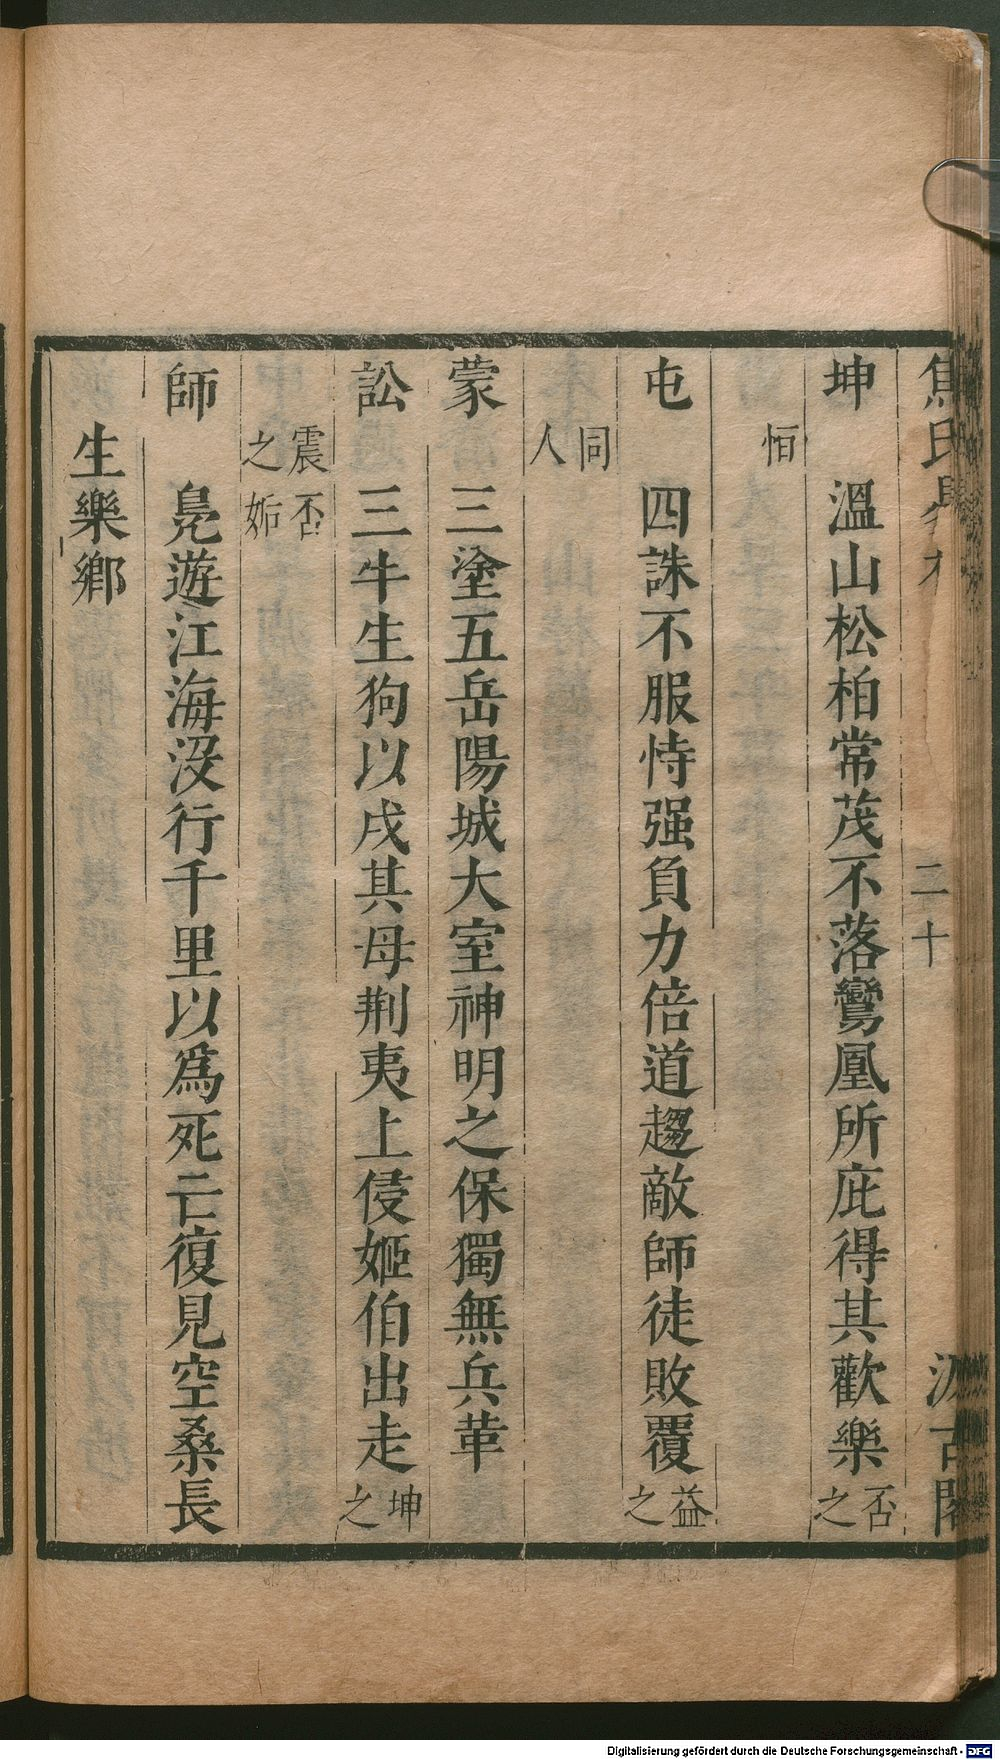 焦氏易林 二十 汲古閣
坤 溫山松柏常茂不落鸞凰所庇得其歡樂 否之
恒
屯 四誅不服恃强負力倍道趨敵師徒敗覆 益之
同人
蒙 三塗五岳陽城大室神明之保獨無兵革
訟 三牛生狗以戌其母荆夷上侵姬伯出走 坤之
震否之姤
師 鳧遊江海沒行千里以爲死亡復見空桑長
生樂鄉
Digitalisierung gefördert durch die Deutsche Forschungsgemeinschaft - DFG